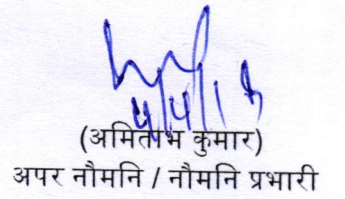 (अमिताभ कुमार)
अपर नौमनि / नौमनि प्रभारी